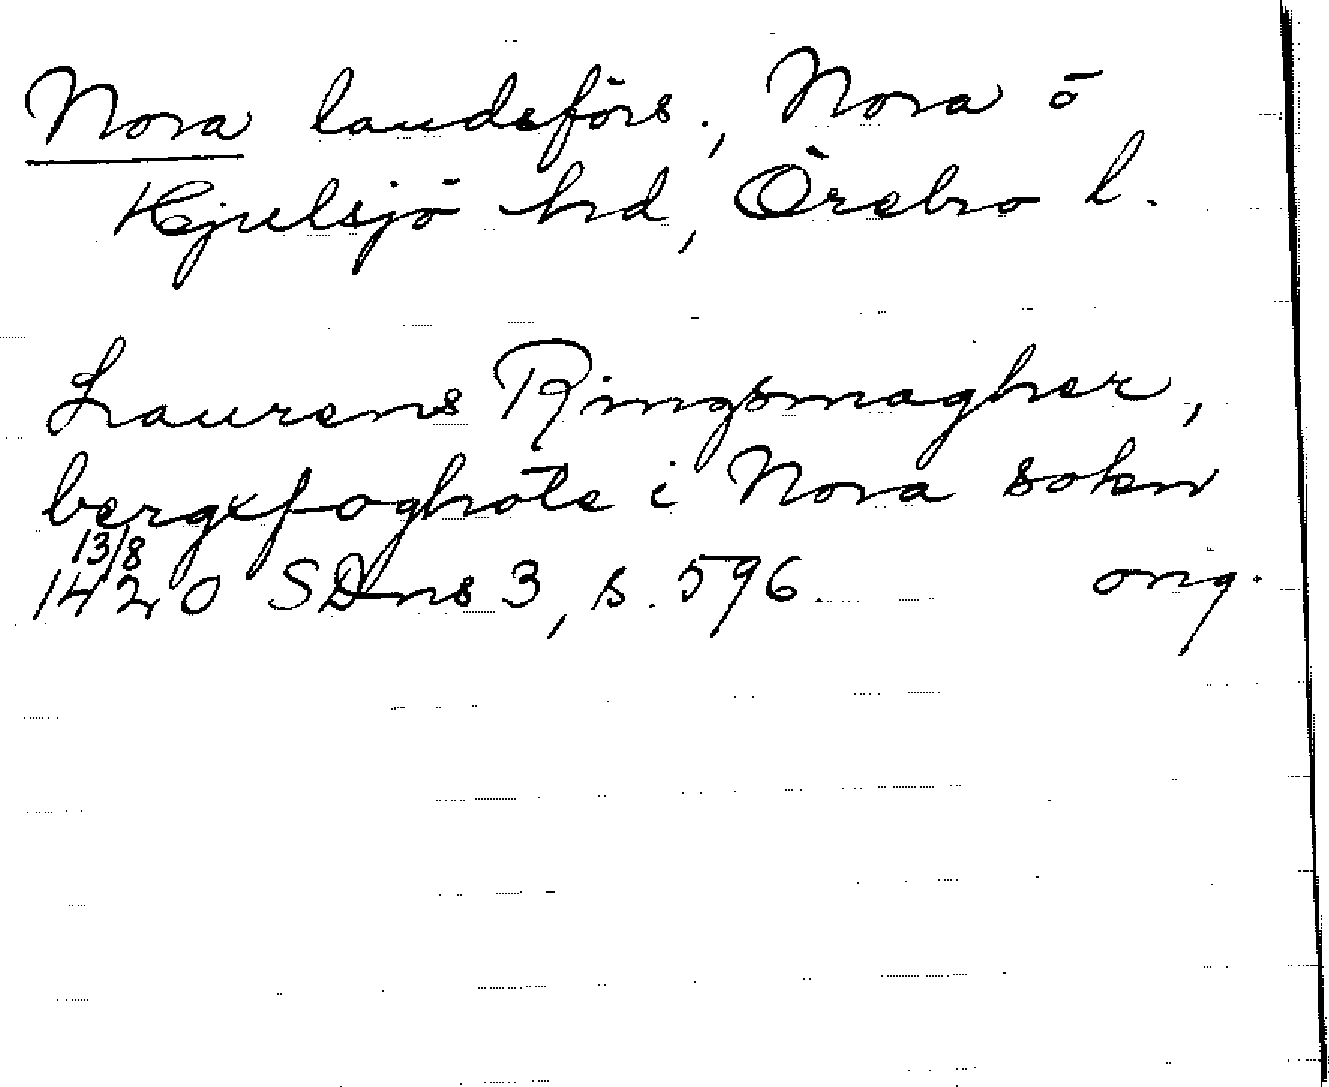 Nora landsförs., Nora ō
Hjulsjö hrd, Örebro l.
Laurens Ringsmagher,
bergxfoghote i Nora sokn
13/8
1420 SDns 3, s. 596. orig.